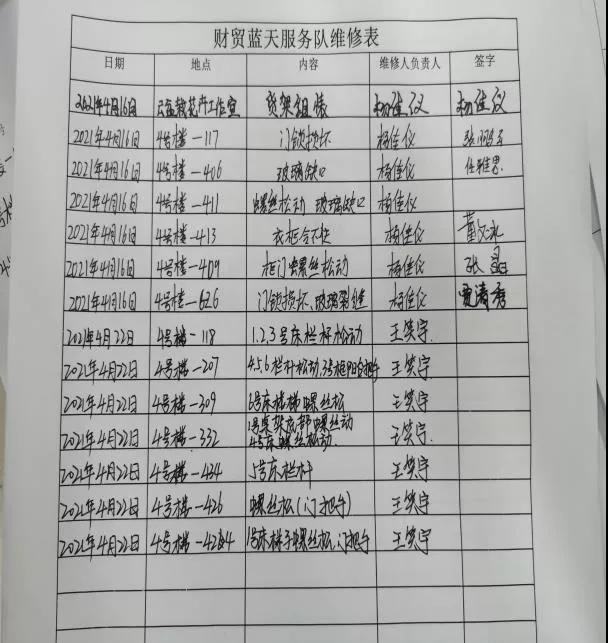 财贸蓝天服务队维修表
日期 地点 内容 维修人负责人 签字
2021年4月16日 货架组装 杨佳仪 杨佳仪
2021年4月16日 4号楼-117 门锁损坏 杨佳仪
2021年4月16日 4号楼-406 玻璃缺口 杨佳仪 任雅思
2021年4月16日 4号楼-411 螺丝松动 玻璃缺口 杨佳仪
2021年4月16日 4号楼-413 衣柜合不拢 杨佳仪
2021年4月16日 4号楼-409 柜门螺丝松动 杨佳仪 张晶
2021年4月16日 4号楼-626 门锁损坏、玻璃裂缝 杨佳仪 贾清秀
2021年4月22日 4号楼-118 1.2.3号床栏杆松动 王笑宇
2021年4月22日 4号楼-207 4.5.6栏杆松动, 王笑宇
2021年4月22日 4号楼-309 6号床楼梯螺丝松 王笑宇
1号桌架底部螺丝动
2021年4月22日 4号楼-332 4号床螺丝松动. 王笑宇
2021年4月22日 4号楼-434 5号床栏杆 王笑宇
2021年4月22日 4号楼-426 螺丝松(门把手) 王笑宇
2021年4月22日 4号楼- 1号床梯子螺丝松,门把手 王笑宇